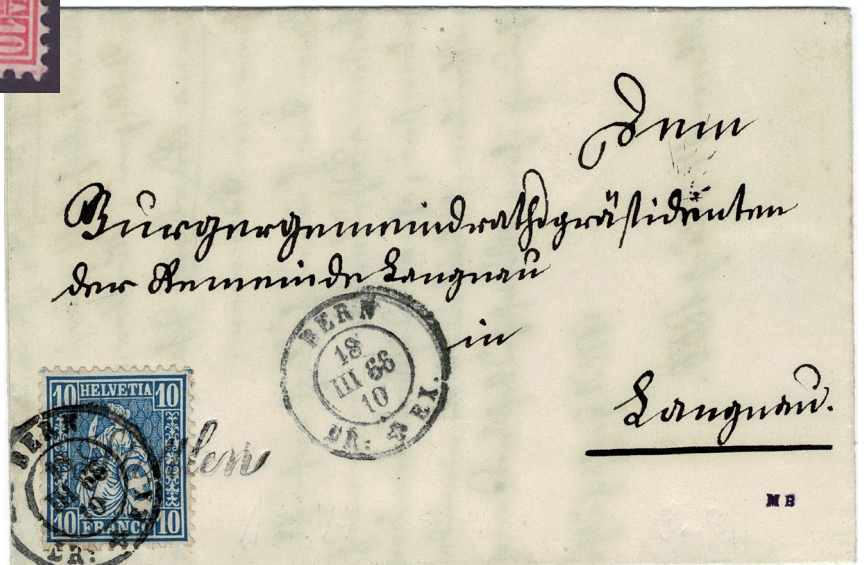 Dem
Burgergemeindrathspräsidenten
der Gemeinde Langnau
in
Langnau.
BERN
18
III 66
10
BR: EX.
10 HELVETIA 10
10 FRANCO 10
BERN
18
III 66
10
BR: EX.
MB
10